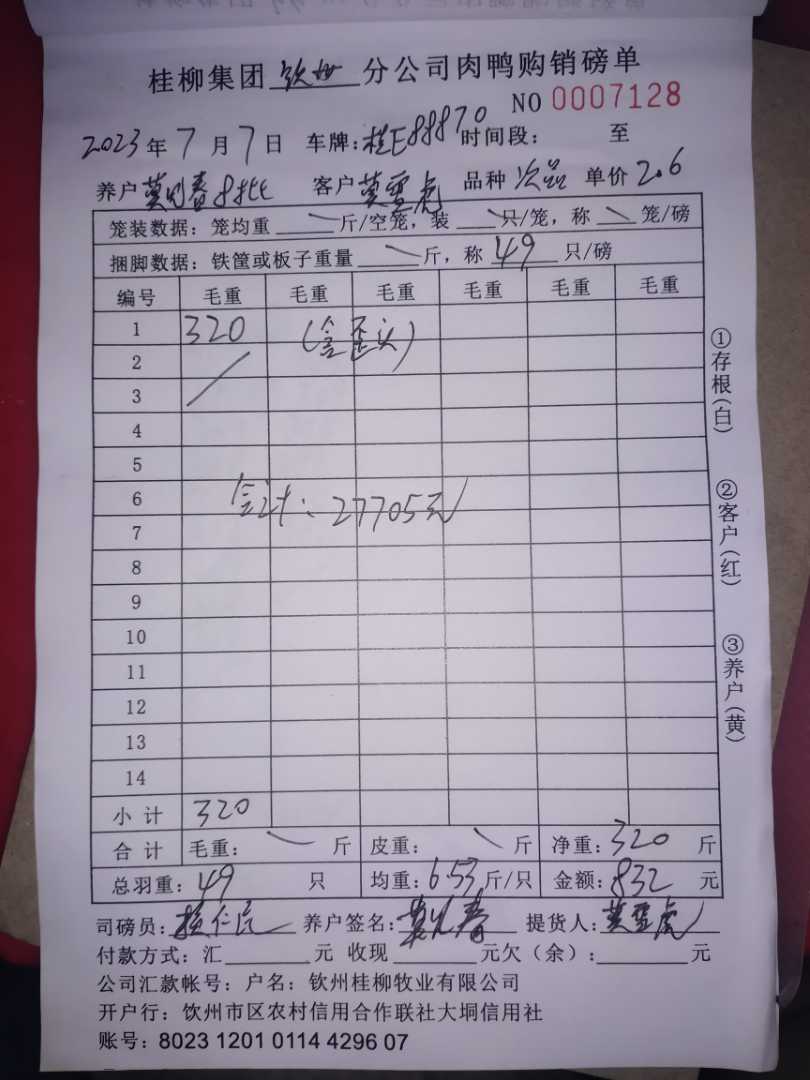 桂柳集团 钦州 分公司肉鸭购销磅单
NO 0007128
2023年7月7日 车牌:桂E88870 时间段: 至
养户 春8批 客户 莫雪虎 品种 次品 单价 2.6
笼装数据:笼均重 斤/空笼,装 只/笼,称 笼/磅
捆脚数据:铁筐或板子重量 斤,称 49 只/磅
编号 毛重 毛重 毛重 毛重 毛重 毛重
1 320 (含歪头)
2
3
4
5
6 合计:27705元
7
8
9
10
11
12
13
14
小计 320
合计 毛重: 斤 皮重: 斤 净重:320 斤
总羽重:49 只 均重:6.53 斤/只 金额:832 元
司磅员: 仁民 养户签名: 春 提货人:莫雪虎
付款方式:汇 元 收现 元欠(余): 元
公司汇款帐号:户名:钦州桂柳牧业有限公司
开户行:钦州市区农村信用合作联社大垌信用社
账号:8023 1201 0114 4296 07
①存根(白)
②客户(红)
③养户(黄)